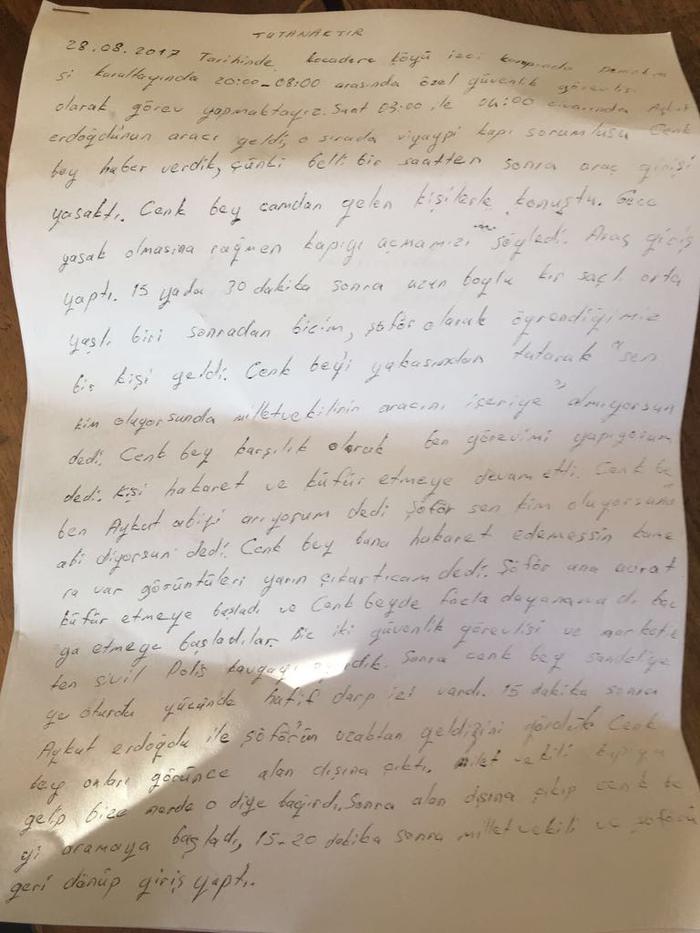 TUTANAKTIR
28.08.2017 Tarihinde kocadere köyü izci kampında
si kurultayında 20:00-08:00 arasında özel güvenlik görevlisi
olarak görev yapmaktayız. Saat 03:00 ile 04:00 civarında Aykut
erdoğdunun aracı geldi, o sırada viyaypi kapı sorumlusu Cenk
bey haber verdik, çünki belli bir saatten sonra araç girişi
yasaktı. Cenk bey camdan gelen kişilerle konuştu. Gece
yasak olmasına rağmen kapıyı açmamızı söyledi. Araç giriş
yaptı. 15 yada 30 dakika sonra uzun boylu kır saçlı orta
yaşlı biri sonradan bizim, şöför olarak öğrendiğimiz
bir kişi geldi. Cenk beyi yakasından tutarak "sen
kim oluyorsunda milletvekilinin aracını içeriye almıyorsun"
dedi. Cenk bey karşılık olarak ben görevimi yapıyorum
dedi. kişi hakaret ve küfür etmeye devam etti. Cenk be
ben Aykut abiyi arıyorum dedi şöför sen kim oluyorsunda
abi diyorsun dedi. Cenk bey bana hakaret edemessin kame
ra var görüntüleri yarın çıkartıcam dedi. Şöför ana avrat
küfür etmeye başladı ve Cenk beyde fazla dayanamadı kav
ga etmeye başladılar. Biz iki güvenlik görevlisi ve marketin
ten sivil Polis kavgayı ayırdık. Sonra cenk bey sandeliye
ye oturdu yüzünde hafif darp izi vardı. 15 dakika sonra
Aykut erdoğdu ile şöförün uzaktan geldiğini gördük Cenk
bey onları görünce alan dışına çıktı. Millet vekili kapıya
gelip bize nerde o diye bağırdı. Sonra alan dışına çıkıp cenk be
yi aramaya başladı, 15-20 dakika sonra milletvekili ve şöförü
geri dönüp giriş yaptı.